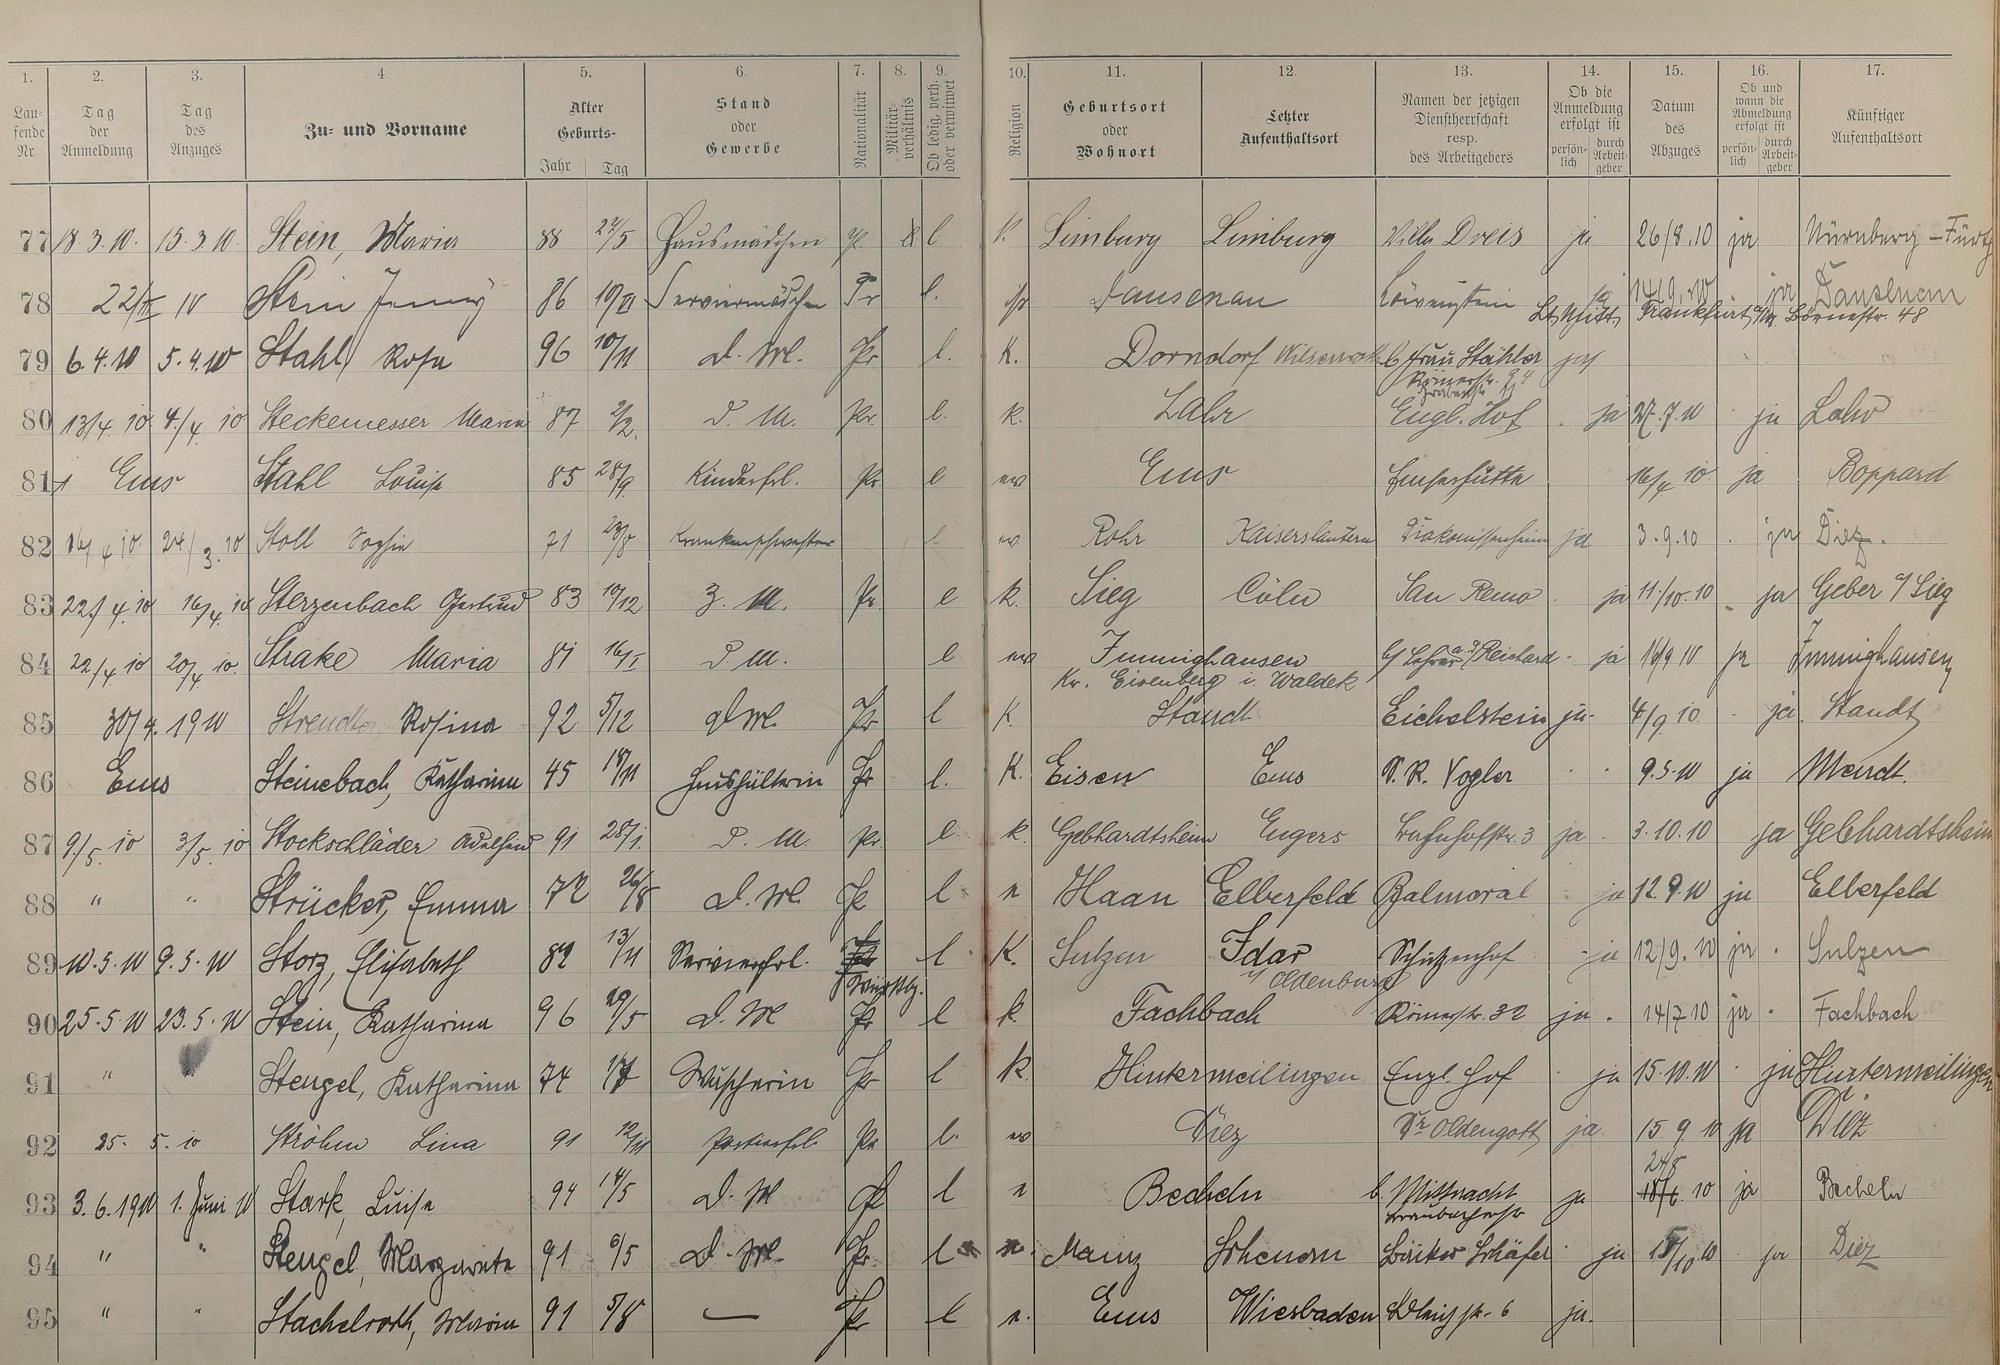 1. 2. 3. 4. 5. 6. 7. 8. 9. 10. 11. 12. 13. 14. 15. 16. 17.
Laufende Nr. Tag der Anmeldung Tag des Anzuges Zu- und Vorname Alter Geburts- Jahr Tag Stand oder Gewerbe Nationalität Militärverhältnis Ob ledig, verh. oder verwitwet Religion Geburtsort oder Wohnort Letzter Aufenthaltsort Namen der jetzigen Dienstherrschaft resp. des Arbeitgebers Ob die Anmeldung erfolgt ist persönlich durch Arbeitgeber Datum des Abzuges Ob und wann die Abmeldung erfolgt ist persönlich durch Arbeitgeber Künftiger Aufenthaltsort
77 18.3.10. 15.3.10 Stein, Maria 88 27/5 Hausmädchen Pr. l K. Limburg Limburg Villa Dreis ja 26/8.10 ja Nürnberg - Fürth
78 22/III 10 Stein Jenny 86 10/VI Serviermädchen Pr l. isr Dausenau Löwenstein ja 14/9.10 ja Dausenau
Frankfurt a/M Börnestr. 48
79 6.4.10 5.4.10 Stahl, Rosa 96 10/11 d. M. Pr l. K. Dorndorf Wilsenroth b. Frau Stähler ja
Römerstr. 94
80 13/4.10 4/4.10 Steckemesser Maria 87 2/2. D. M. Pr. l. k. Lahr Engl. Hof . ja 27.7.10 . ja Lahr
81 Ems Stahl Louise 85 28/9. Kinderfrl. Pr. l ev Ems Emserhütte 16/4 10 ja Boppard
82 16/4 10. 24/3.10 Stoll Sophie 71 23/8 Krankenschwester l ev Rohr Kaiserslautern Diakonissenheim ja 3.9.10 . ja Diez.
83 22/4.10 16/4.10 Sterzenbach Gertrud 83 10/12 Z. M. Pr. l k. Sieg Cöln San Remo . ja 11./10.10 . ja Geber a/Sieg
84 22/4.10 20/4.10. Strake Maria 81 16/I D. M. l ev Immighausen b/ Lehrer a.D. Reichard . ja 16/9 10 ja Immighausen
Kr. Eisenberg i. Waldek
85 30/4. 1910 Rosina 92 5/12 d M. Pr l K. Staudt Eichelstein ja. 4/9 10 . ja Staudt
86 Ems Steinebach, Katharina 45 18/11 Haushälterin Pr l. K. Eisen Ems S. R. Vogler . . 9.5.10 ja Meudt.
87 9/5.10 3/5.10 Stockschläder Adelheid 91 28/1. D. M. Pr. l k. Gebhardtshein Engers Bahnhofstr. 3 ja . 3.10.10 ja Gebhardtshein
88 " " Strücker, Emma 72 26/8 d. M. Pr l e Haan Elberfeld Balmoral . ja 12.9.10 ja Elberfeld
89 10.5.10 9.5.10 Storz, Elisabeth 82 13/11 Servierfrl. l K. Sulzen Idar Schützenhof - ja 12/9.10 ja . Sulzen
Württbg. i/ Oldenburg
90 25.5.10 23.5.10 Stein, Katharina 96 29/5 d. M Pr l k. Fachbach Römerstr. 32 ja . 14/7 10 ja . Fachbach
91 " Stengel, Katharina 74 Wäscherin Pr l K. Hintermeilingen Engl. Hof . ja 15.10.10 . ja Hintermeilingen
92 25. 5. 10 Ströhm Lina 91 12/11 Pr l. ev Diez Dr. Oldengott ja. 15.9.10 ja Diez
93 3.6.1910 1. Juni 10 Stark, Luise 94 14/5 d. M Pr l e Becheln b. Mittnacht ja 24/8 10 ja Becheln
94 " " Stengel, Margareta 91 6/5 d. M. Pr. l Mainz Bäcker Schäfer . ja 15/10.10 . ja Diez
95 " " Stachelroth, Maria 91 5/8 — Pr l e. Ems Wiesbaden 6 ja.